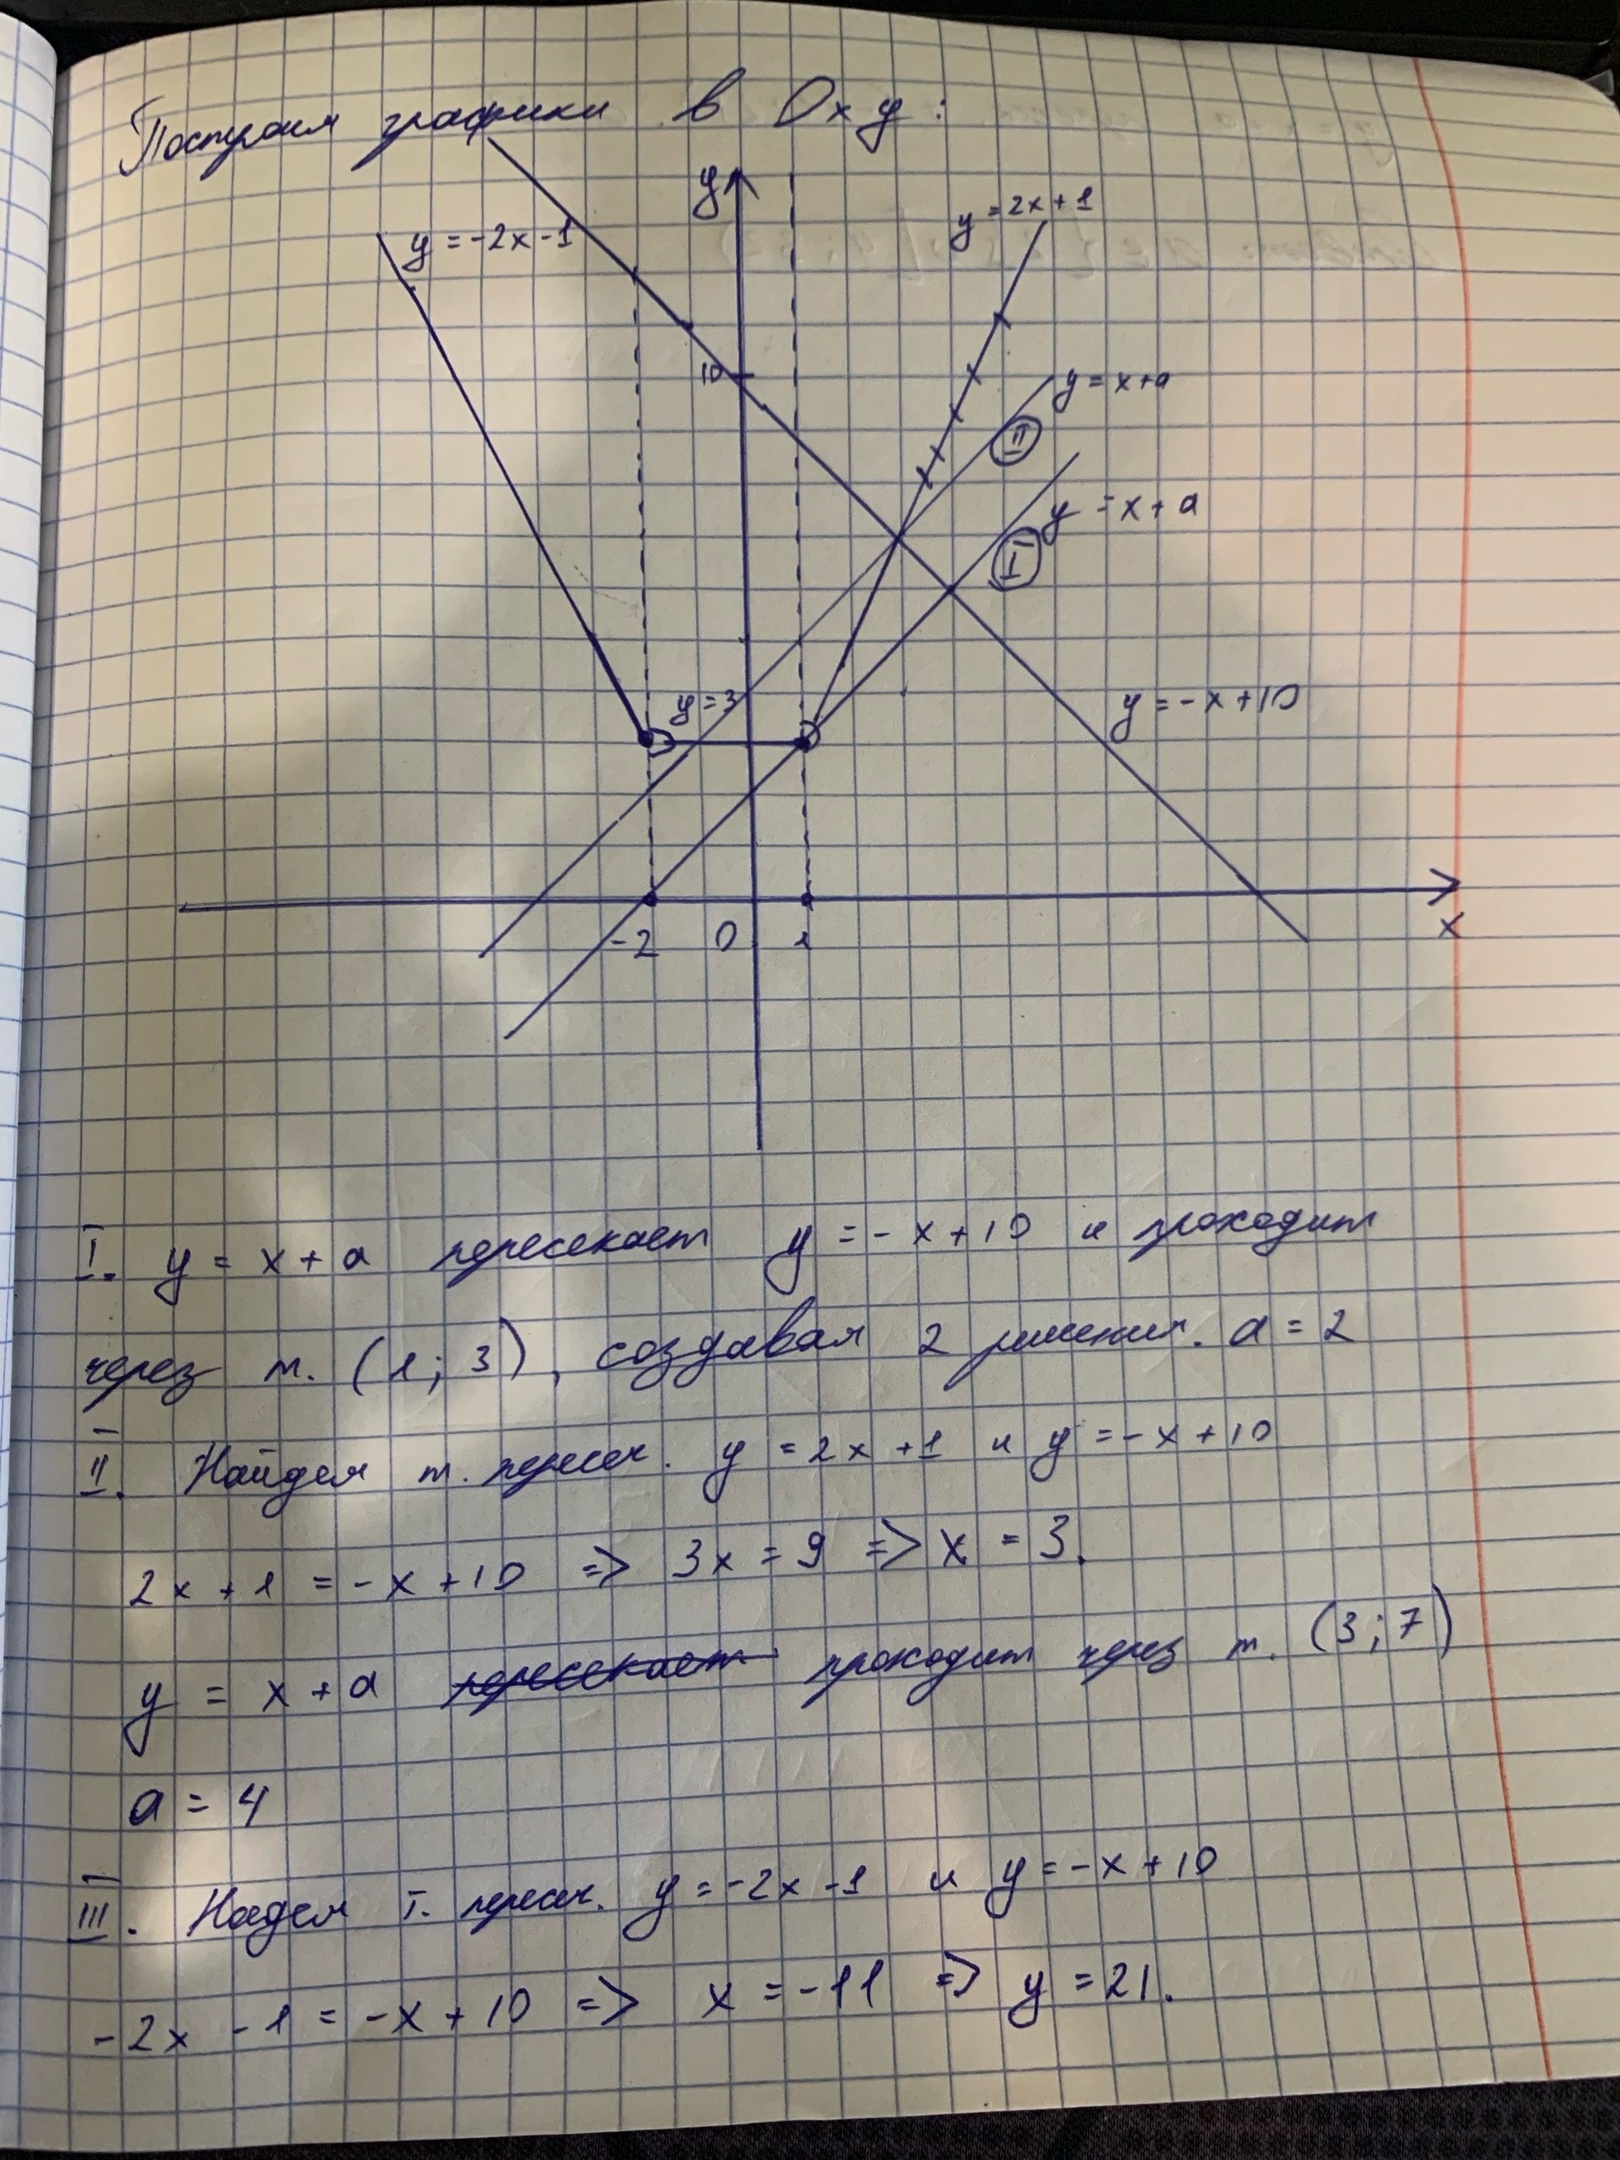 Построим графики в Oxy:
y
y = -2x - 1
y = 2x + 1
10
y = x + a
II
y = x + a
I
y = 3
y = -x + 10
-2
0
1
x
I. y = x + a пересекает y = -x + 10 и проходит
через т. (1; 3), создавая 2 решения. a = 2
II. Найдем т. пересеч. y = 2x + 1 и y = -x + 10
2x + 1 = -x + 10 => 3x = 9 => x = 3.
y = x + a пересекает проходит через т. (3; 7)
a = 4
III. Надем т. пересеч. y = -2x - 1 и y = -x + 10
-2x - 1 = -x + 10 => x = -11 => y = 21.